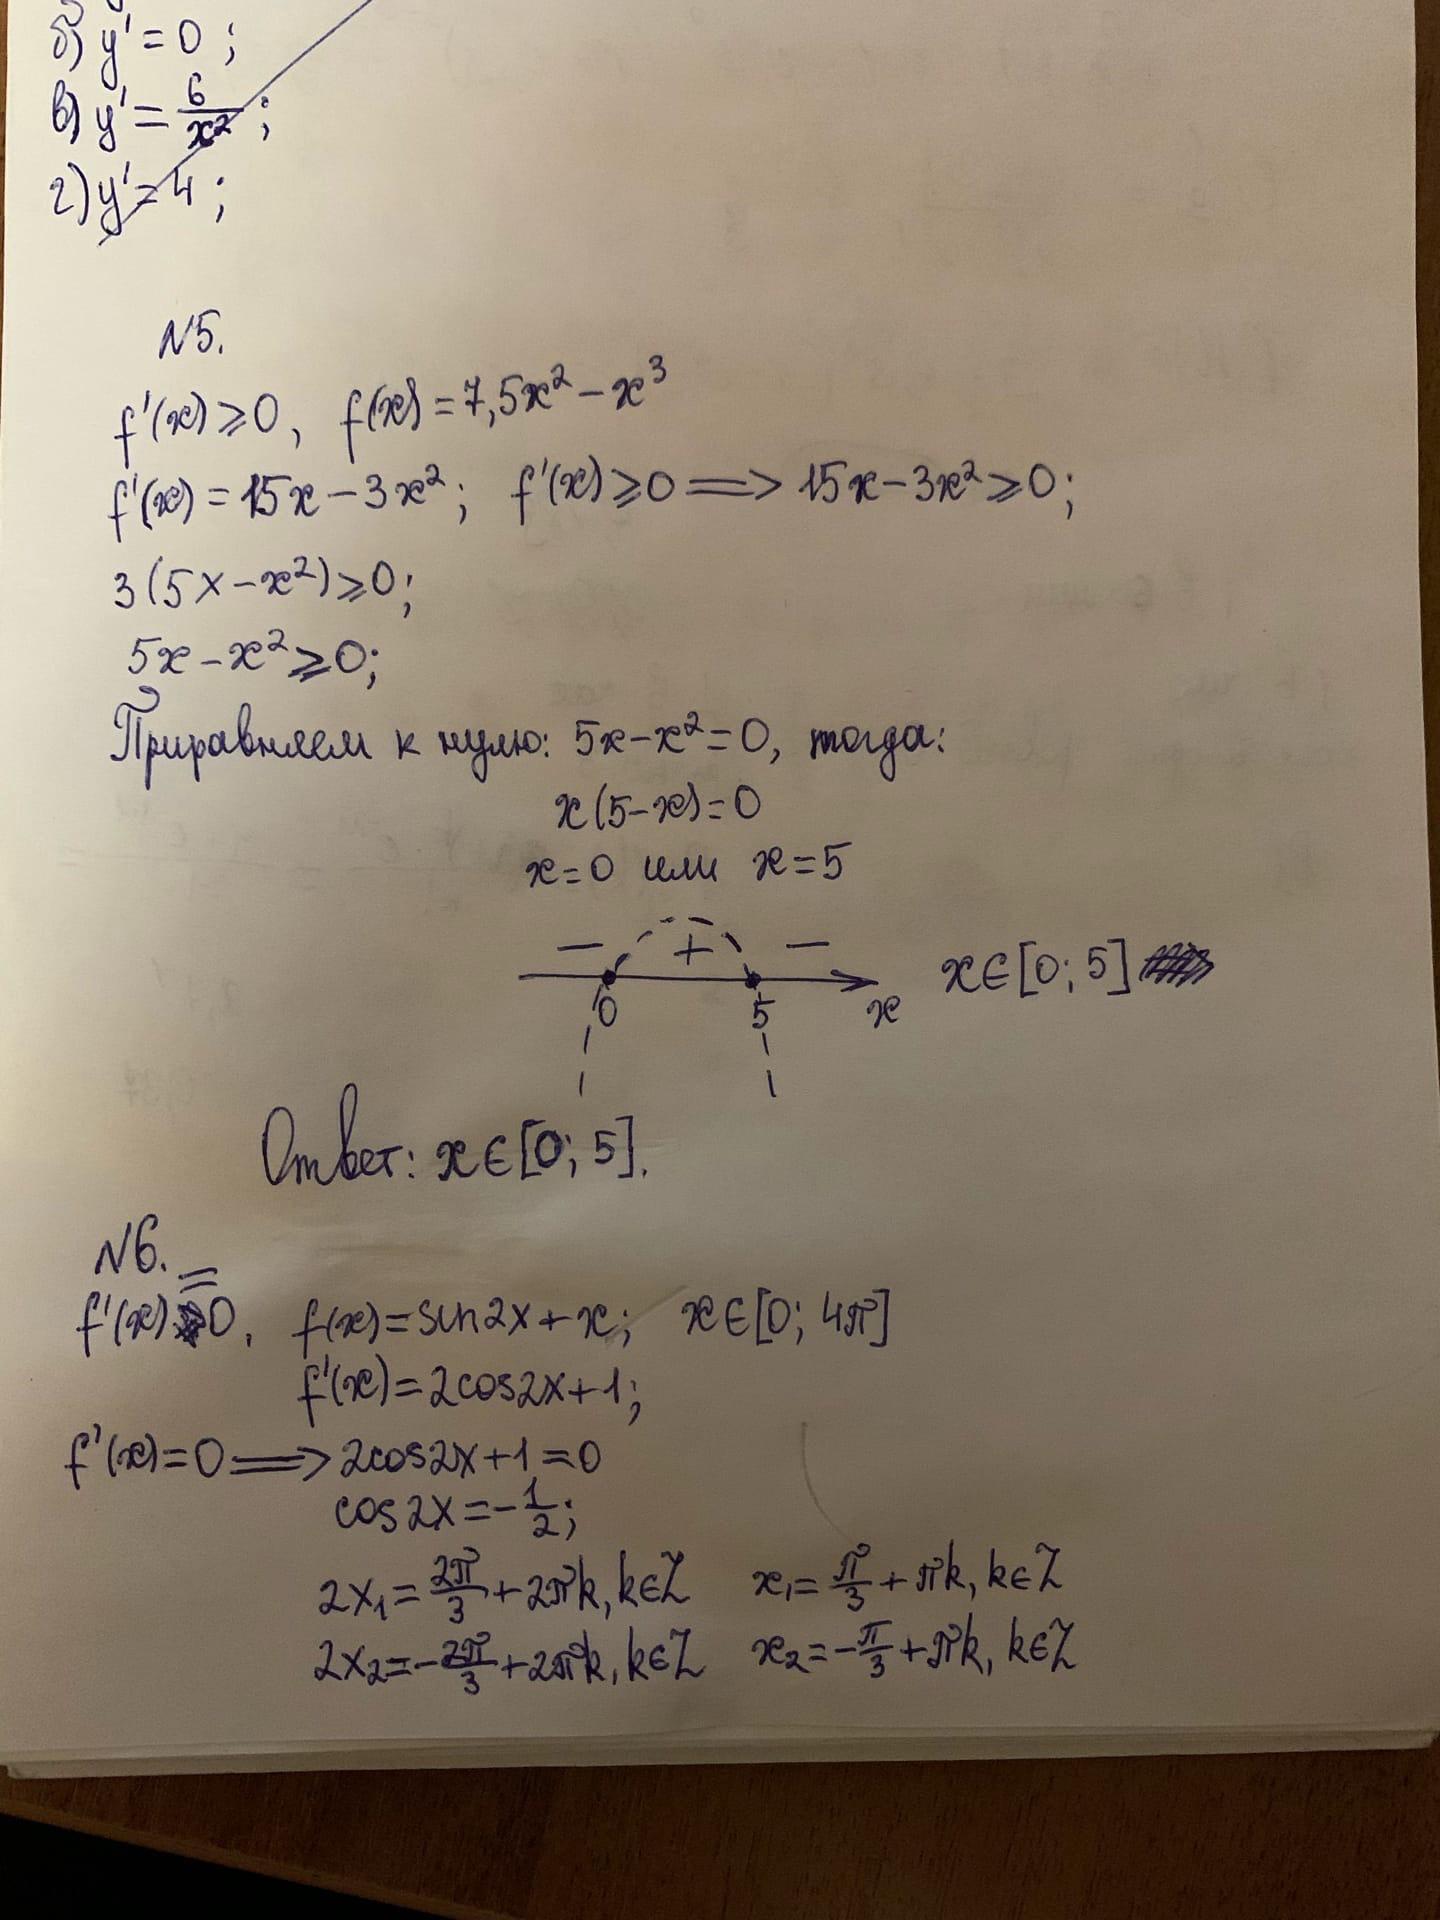 б) y' = 0 ;
в) y' = 6/x² ;
г) y' = 4 ;
N5.
f'(x) ⩾ 0, f(x) = 7,5x² − x³
f'(x) = 15x − 3x² ; f'(x) ⩾ 0 ⟹ 15x − 3x² ⩾ 0 ;
3(5x − x²) ⩾ 0 ;
5x − x² ⩾ 0 ;
Приравняем к нулю: 5x − x² = 0, тогда:
x(5 − x) = 0
x = 0 или x = 5
− + − x ∈ [0; 5]
0 5 x
Ответ: x ∈ [0; 5].
N6.
f'(x) = 0, f(x) = sin2x + x; x ∈ [0; 4π]
f'(x) = 2cos2x + 1;
f'(x) = 0 ⟹ 2cos2x + 1 = 0
cos2x = −1/2;
2x₁ = 2π/3 + 2πk, k ∈ Z x₁ = π/3 + πk, k ∈ Z
2x₂ = −2π/3 + 2πk, k ∈ Z x₂ = −π/3 + πk, k ∈ Z